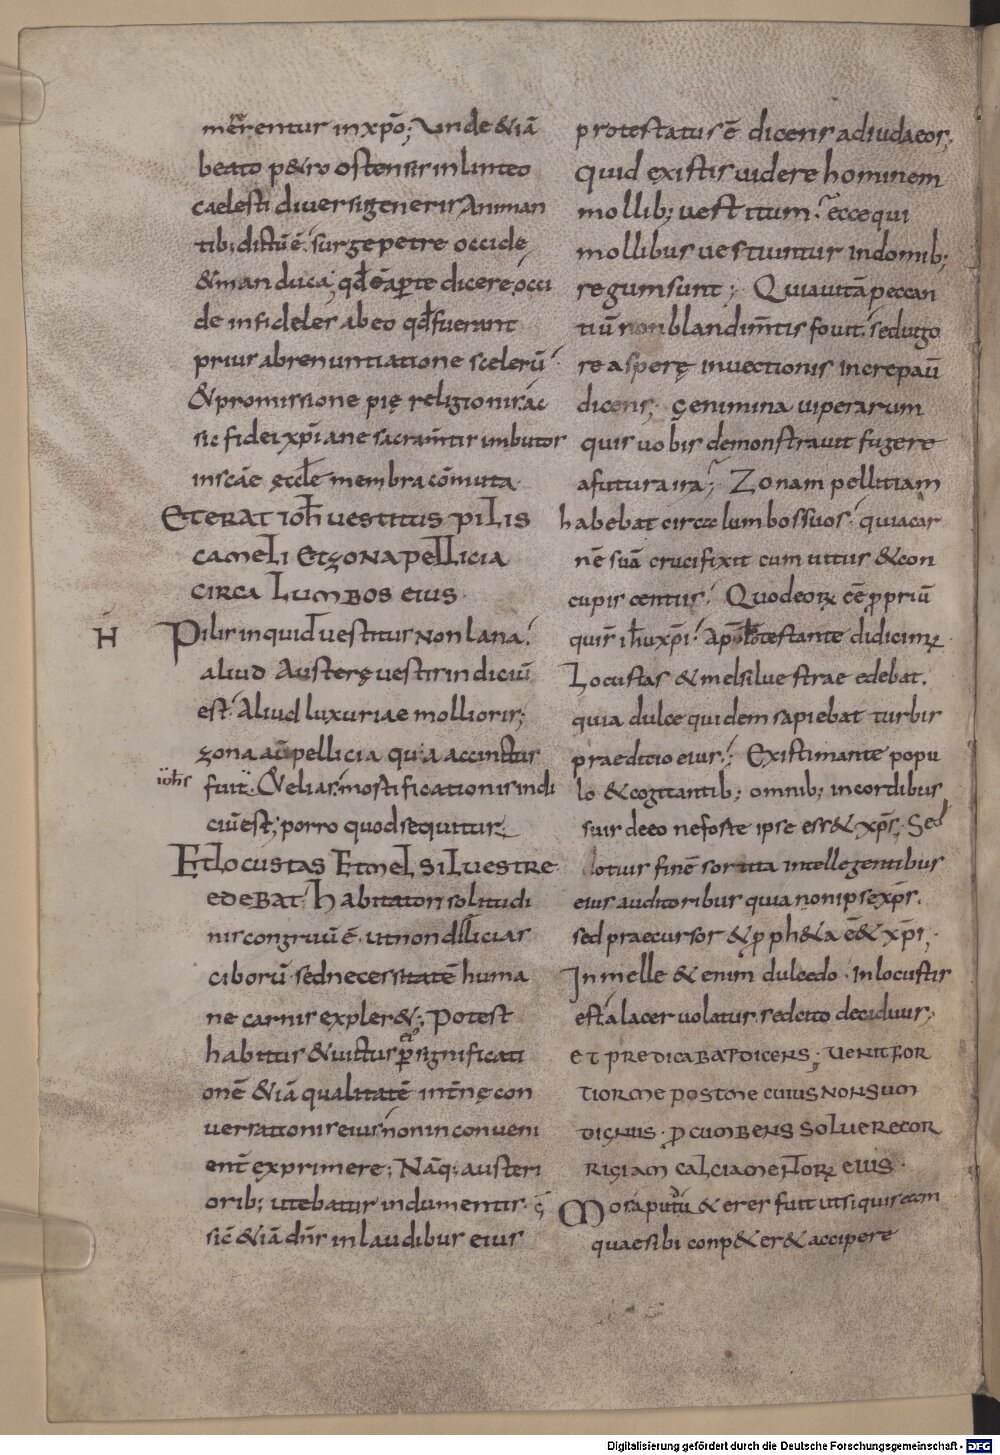 merentur inxpō; Vnde &iā
beato p&ro ostensis inlinteo
caelesti diversigeneris Animan
tib; dictū ē. surge petre occide
& manduca; qđ ē apte dicere occi
de infideles abeo qđ fuerant
prius abrenuntiatione scelerū
& promissione pię religionis. ac
sic fidei xp̄iane sacram̄tis imbutos
inscāe ęccłe membra cōmuta
ETERAT ioħ vestitus piLis
cameLi Et zona peLLicia
circa Lumbos eius
H
Pilis inquid vestitus non lana.
aliud Austerę vestis indiciū
est. Aliud luxuriae mollioris;
zona aū pellicia qua accinctus
iohs
fuit. & elias. mostificationis indi
ciū est; porro quod sequitur
Et Locustas Et meL siLuestre
edebat. habitatori solitudi
nis congruū ē. ut non dilicias
ciborū sed necessitatē huma
ne carnis expler&; Potest
habitus & uictus p significati
onē & iā qualitatē int̄nę con
uersationis eius non inconueni
ent exprimere; Nāq; austeri
oribȝ utebatur indumentis. q
sic̄ & iā dn̄s in laudibus eius
protestatus ē dicens ad iudaeos;
quid existis uidere hominem
mollib; uestitum. ecce qui
mollibus uestiuntur indomib;
regum sunt; Quia uitā peccan
tiū non blandim̄tis fouit. sed uigo
re asperę inuectionis increpaū
dicens; genimina uiperarum
quis uobis demonstrauit fugere
a futura ira; Zonam pellitiam
habebat circa lumbos suos. quia car
nē suā crucifixit cum uitiis & con
cupiscentiis. Quod eoꝝ ēē ppriū
qui s̄ iħu xp̄i. apōstolo testante didicimꝰ
Locustas & mel siluestrae edebat.
quia dulce quidem sapiebat turbis
praedicio eius.; Existimante popu
lo & cogitantib; omnib; in cordibus
suis de eo ne foste ipse ess& xp̄s; Sed
otius finē sortita intellegentibus
eius auditoribus quia non ipse xp̄s.
sed praecursor & pph&a ēē& xp̄i;
In melle & enim dulcedo. In locustis
est alacer uolatus. sed cito deciduus;
et predicabat dicens; uenit for
tior me post me cuius non sum
dignus. pcumbens soluere cor
rigiam calciamentoꝝ eius.
Mos apud & eres fuit ut si quis eam
quae sibi conp&er& accipere